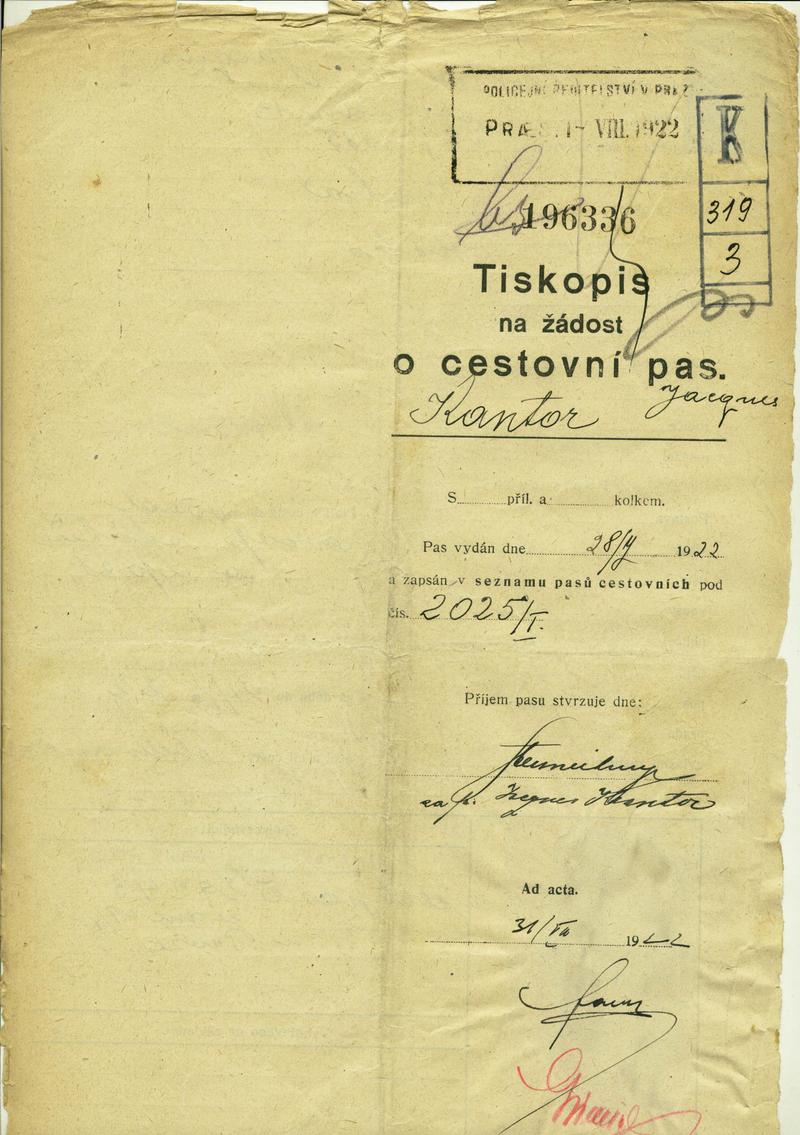 POLICEJNÍ ŘEDITELSTVÍ V PRAZE
PRÆS. 1- VIII. 1922
K
319
3
196336
Tiskopis
na žádost
o cestovní pas.
Kantor Jacques
S........příl. a........kolkem.
Pas vydán dne 28/V 1922
a zapsán v seznamu pasů cestovních pod
čís. 2025/I.
Příjem pasu stvrzuje dne:
za p. Kantor
Ad acta.
31/VII 1922